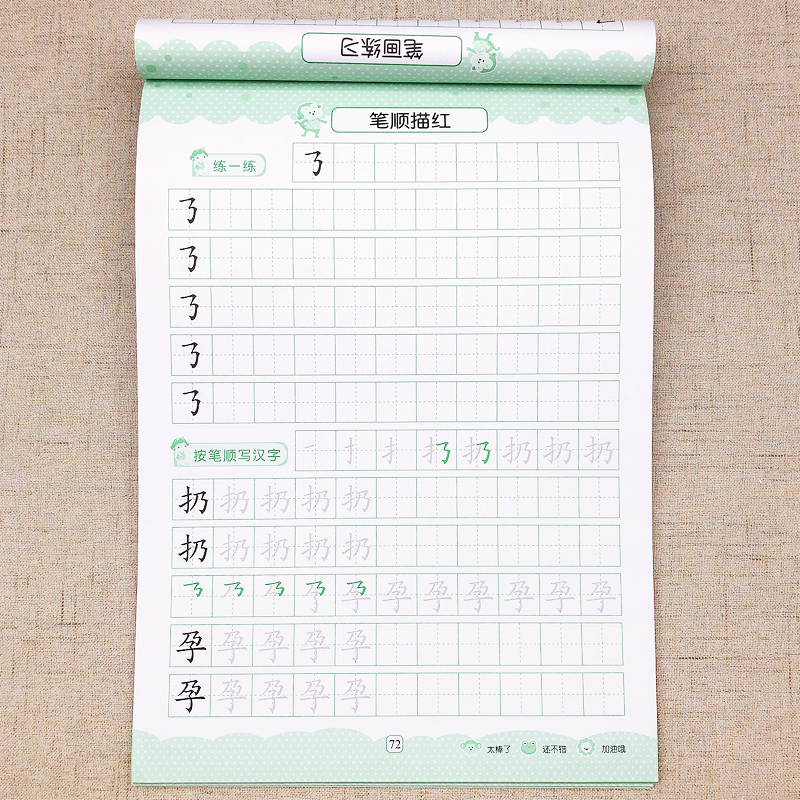 笔画练习
笔顺描红
练一练 ㇡
㇡
㇡
㇡
㇡
㇡
按笔顺写汉字 一 扌 扔 扔 扔 扔
扔 扔 扔 扔 扔
扔 扔 扔 扔 扔
㇡ 乃 孕 孕 孕 孕 孕 孕 孕
孕 孕 孕 孕 孕
孕 孕 孕 孕 孕
72 太棒了 还不错 加油哦